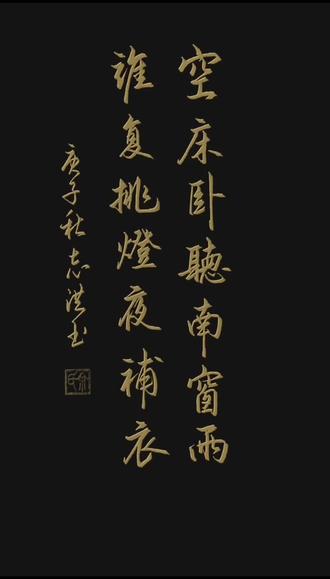 空床卧聽南窗雨
誰复挑燈夜補衣
庚子秋志洪书